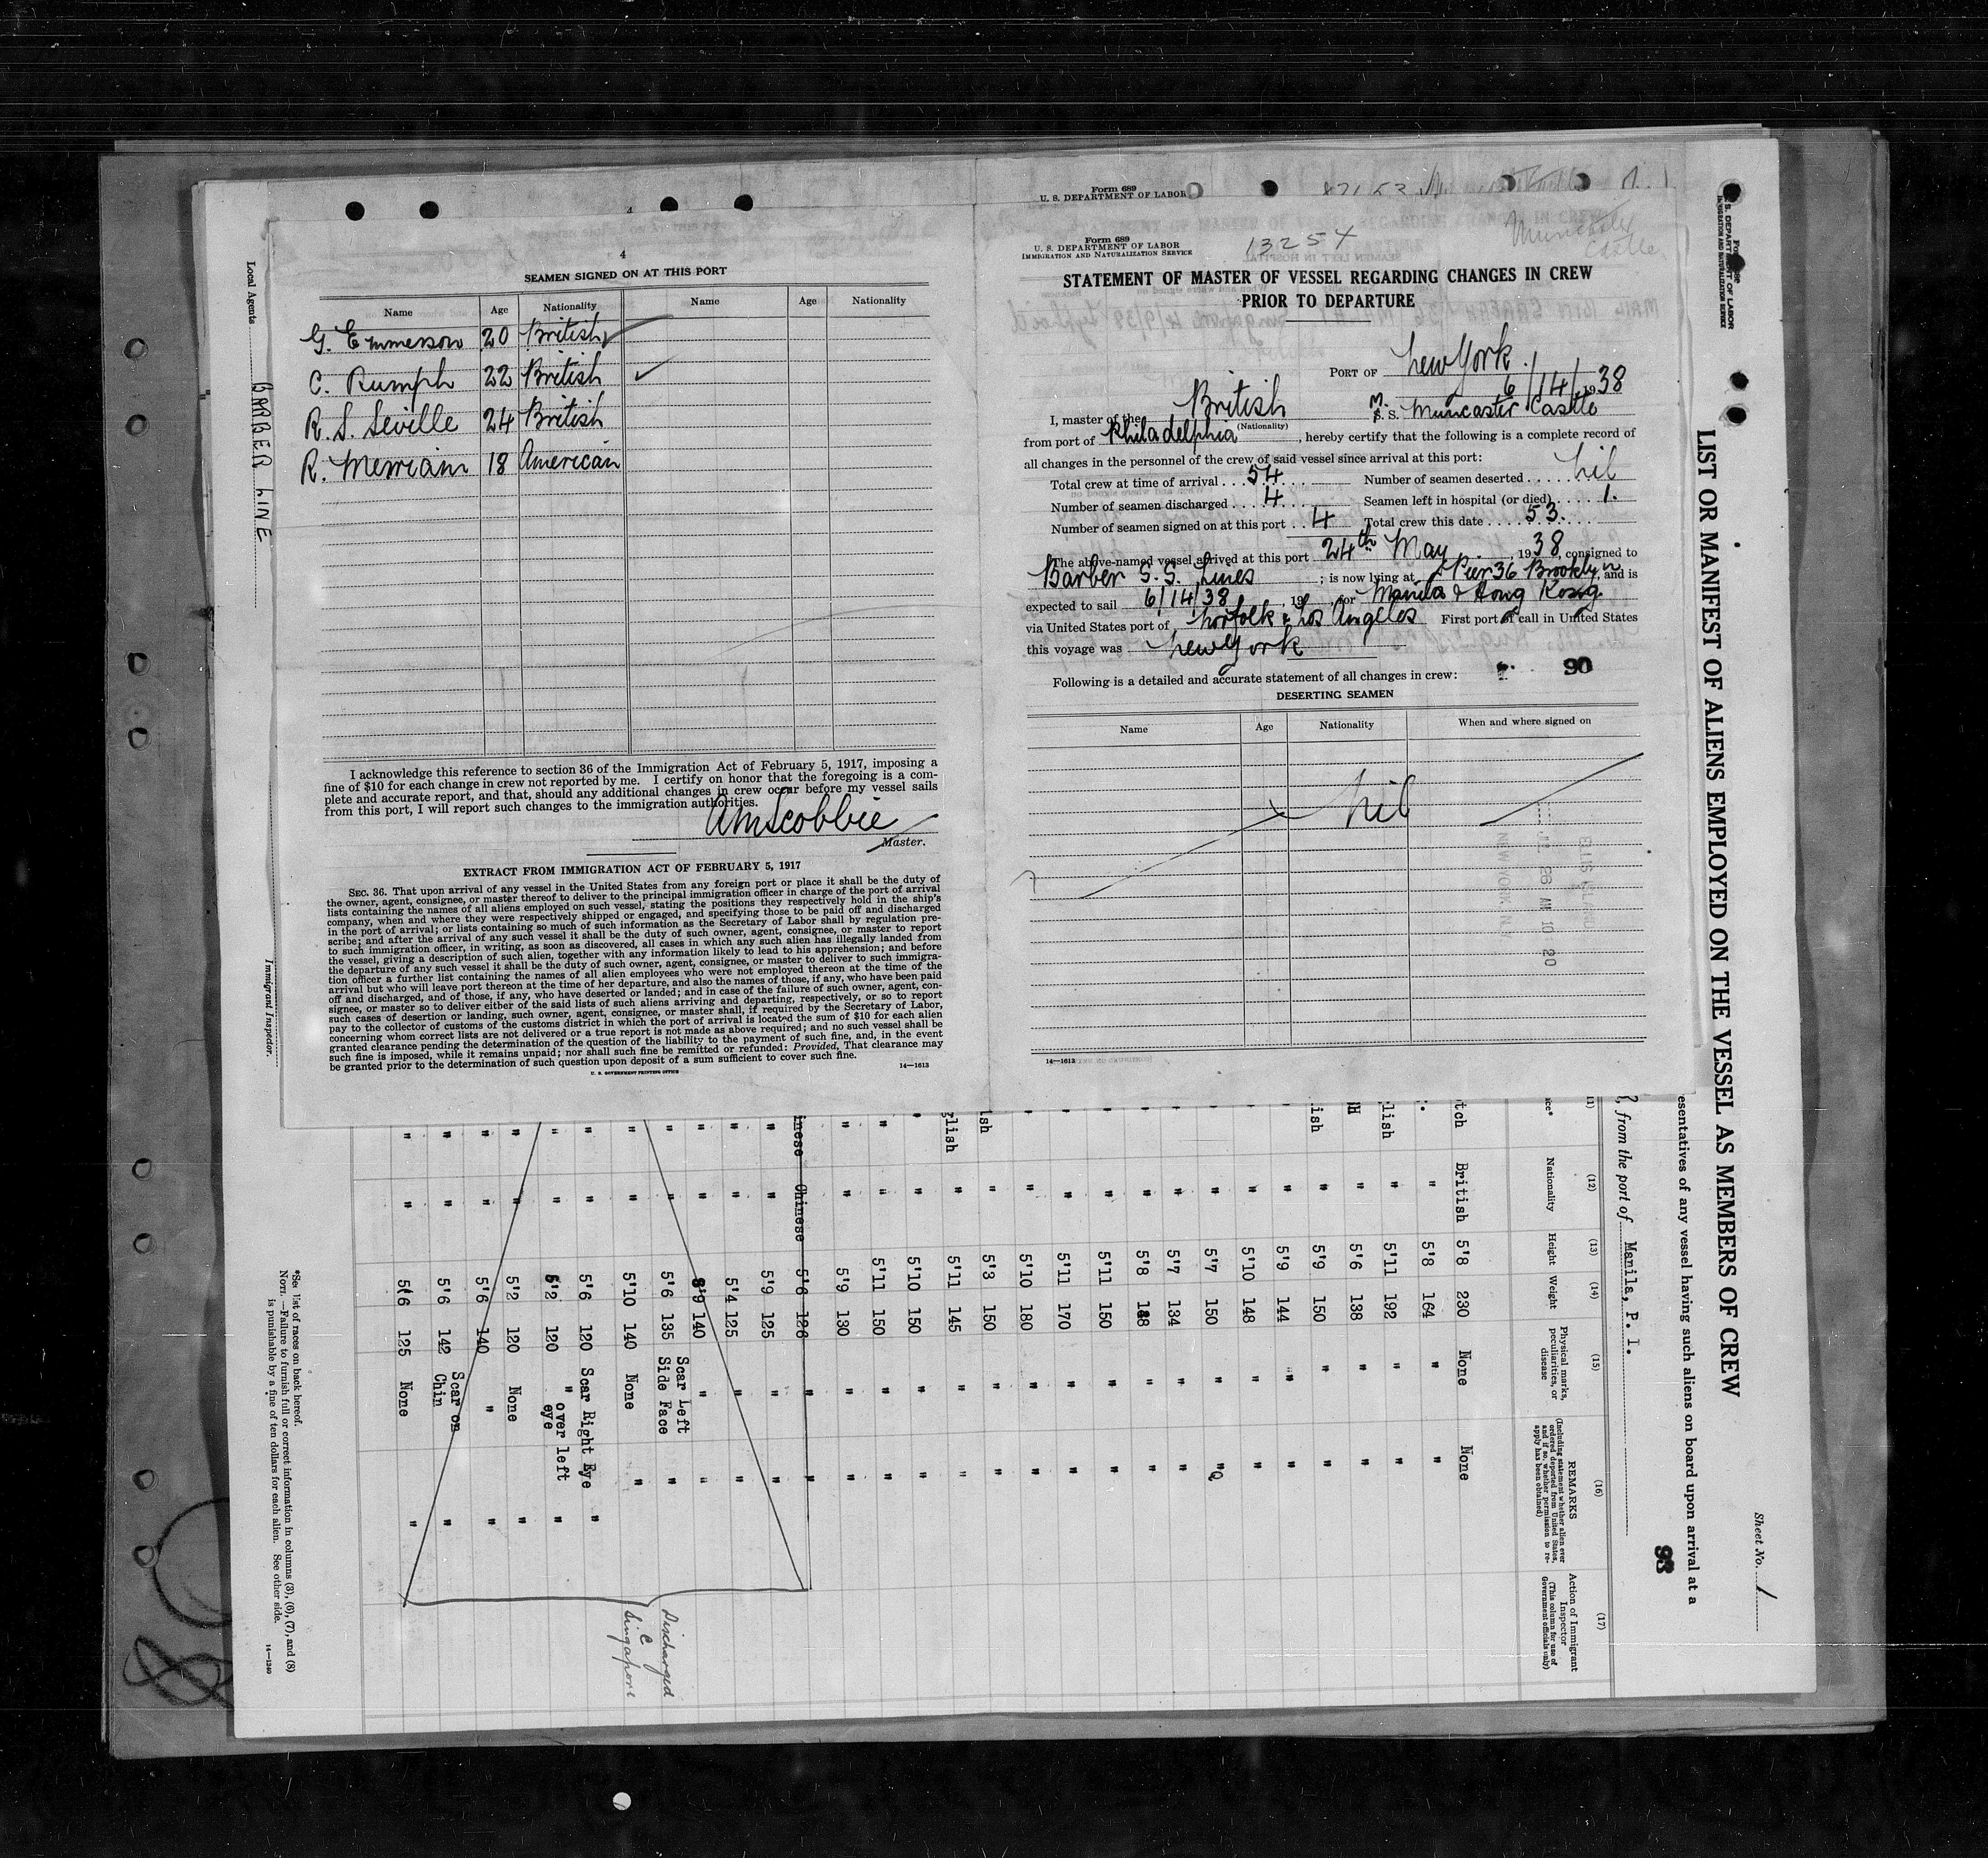 4
4
SEAMEN SIGNED ON AT THIS PORT
Name Age Nationality Name Age Nationality
G. Emmerson 20 British
C. Rumph 22 British
R. S. Seville 24 British
R. Merriam 18 American
I acknowledge this reference to section 36 of the Immigration Act of February 5, 1917, imposing a
fine of $10 for each change in crew not reported by me. I certify on honor that the foregoing is a com-
plete and accurate report, and that, should any additional changes in crew occur before my vessel sails
from this port, I will report such changes to the immigration authorities.
AMScobbie
Master.
EXTRACT FROM IMMIGRATION ACT OF FEBRUARY 5, 1917
SEC. 36. That upon arrival of any vessel in the United States from any foreign port or place it shall be the duty of
the owner, agent, consignee, or master thereof to deliver to the principal immigration officer in charge of the port of arrival
lists containing the names of all aliens employed on such vessel, stating the positions they respectively hold in the ship's
company, when and where they were respectively shipped or engaged, and specifying those to be paid off and discharged
in the port of arrival; or lists containing so much of such information as the Secretary of Labor shall by regulation pre-
scribe; and after the arrival of any such vessel it shall be the duty of such owner, agent, consignee, or master to report
to such immigration officer, in writing, as soon as discovered, all cases in which any such alien has illegally landed from
the vessel, giving a description of such alien, together with any information likely to lead to his apprehension; and before
the departure of any such vessel it shall be the duty of such owner, agent, consignee, or master to deliver to such immigra-
tion officer a further list containing the names of all alien employees who were not employed thereon at the time of the
arrival but who will leave port thereon at the time of her departure, and also the names of those, if any, who have been paid
off and discharged, and of those, if any, who have deserted or landed; and in case of the failure of such owner, agent, con-
signee, or master so to deliver either of the said lists of such aliens arriving and departing, respectively, or so to report
such cases of desertion or landing, such owner, agent, consignee, or master shall, if required by the Secretary of Labor,
pay to the collector of customs of the customs district in which the port of arrival is located the sum of $10 for each alien
concerning whom correct lists are not delivered or a true report is not made as above required; and no such vessel shall be
granted clearance pending the determination of the question of the liability to the payment of such fine, and, in the event
such fine is imposed, while it remains unpaid; nor shall such fine be remitted or refunded: Provided, That clearance may
be granted prior to the determination of such question upon deposit of a sum sufficient to cover such fine.
U. S. GOVERNMENT PRINTING OFFICE 14—1613
Form 689
U. S. DEPARTMENT OF LABOR
Form 689
U. S. DEPARTMENT OF LABOR
IMMIGRATION AND NATURALIZATION SERVICE
13254
Muncaster
Castle
STATEMENT OF MASTER OF VESSEL REGARDING CHANGES IN CREW
PRIOR TO DEPARTURE
PORT OF New York.
6/14/1938
I, master of the British M. S. S. Muncaster Castle
(Nationality)
from port of Philadelphia, hereby certify that the following is a complete record of
all changes in the personnel of the crew of said vessel since arrival at this port:
Total crew at time of arrival . . . 54 Number of seamen deserted . . . . . Nil
Number of seamen discharged . . . . 4 Seamen left in hospital (or died) . . . . 1.
Number of seamen signed on at this port . . 4 Total crew this date . . . . 53.
The above-named vessel arrived at this port 24th May, 1938, consigned to
Barber S.S. Lines; is now lying at Pier 36 Brooklyn, and is
expected to sail 6/14/38, 19 , for Manila & Hong Kong.
via United States port of Norfolk & Los Angeles First port of call in United States
this voyage was New York
90
Following is a detailed and accurate statement of all changes in crew:
DESERTING SEAMEN
Name Age Nationality When and where signed on
Nil
ELLIS ISLAND
26 AM 10 20
NEW YORK, N.Y.
14—1613
Local Agents BARBER LINE
Immigrant Inspector.
LIST OR MANIFEST OF ALIENS EMPLOYED ON THE VESSEL AS MEMBERS OF CREW
Sheet No. 1
esentatives of any vessel having such aliens on board upon arrival at a
93
, from the port of Manila, P. I.
(12) (13) (14) (15) (16) (17)
Nationality
Height
Weight
Physical marks, peculiarities, or disease
REMARKS
(Including statement whether alien ever ordered deported from United States, and if so, whether permission to re-apply has been obtained)
Action of Immigrant Inspector
(This column for use of Government officials only)
tch British 5'8 230 None None
" 5'8 164 " "
lish " 5'11 192 " "
" 5'6 138 " "
ish " 5'9 150 " "
" 5'9 144 " "
" 5'10 148 " "
" 5'7 150 " "
" 5'7 134 " "
" 5'8 " "
" 5'11 150 " "
" 5'11 170 " "
" 5'10 180 " "
ish " 5'3 150 " "
glish " 5'11 145 " "
" " 5'10 150 " "
" " 5'11 150 " "
" " 5'9 130 " "
inese Chinese 5'6 126 " "
" " 5'9 125 " "
" " 5'4 125 " "
" " 5'9 140 " "
" " 5'6 135 Scar Left Side Face "
" " 5'10 140 None "
" " 5'6 120 Scar Right Eye "
" " 5'2 120 " over left eye "
" " 5'2 120 None "
" " 5'6 140 " "
" " 5'6 142 Scar on Chin "
" " 5'6 125 None "
Discharged
@
Singapore
*See list of races on back hereof.
NOTE.—Failure to furnish full or correct information in columns (3), (6), (7), and (8)
is punishable by a fine of ten dollars for each alien. See other side.
14—1240